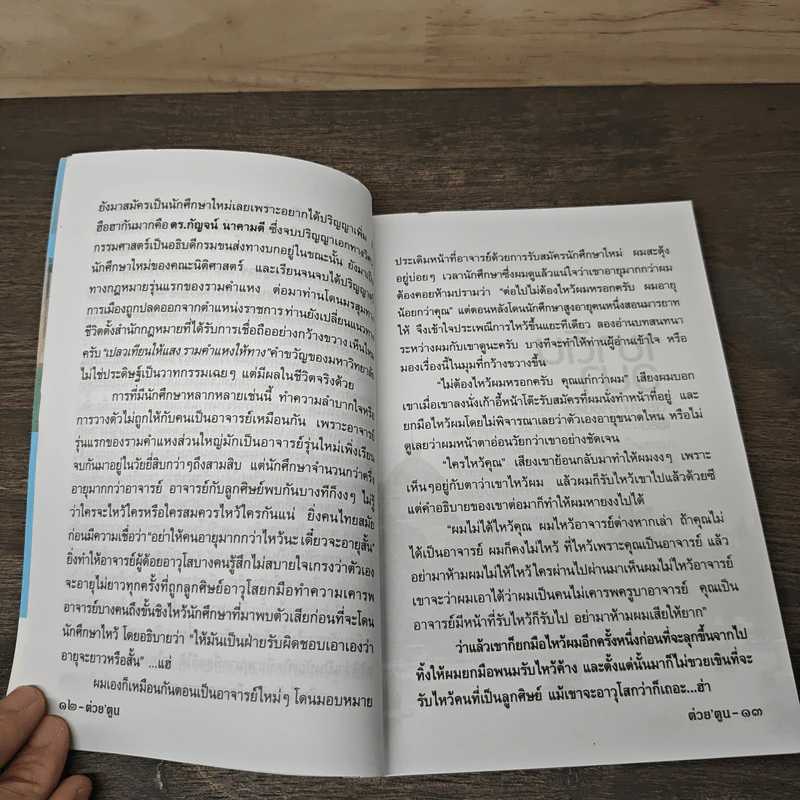 ยังมาสมัครเป็นนักศึกษาใหม่เลยเพราะอยากได้ปริญญาเพิ่ม
ฮือฮากันมากคือ ดร.กัญจน์ นาคามดี ซึ่งจบปริญญาเอกทาง
กรรมศาสตร์เป็นอธิบดีกรมขนส่งทางบกอยู่ในขณะนั้น ยังมา
นักศึกษาใหม่ของคณะนิติศาสตร์ และเรียนจนจบได้ปริญญา
ทางกฎหมายรุ่นแรกของรามคำแหง ต่อมาท่านโดนมรสุมทาง
การเมืองถูกปลดออกจากตำแหน่งราชการ ท่านยังเปลี่ยนแนวทาง
ชีวิตตั้งสำนักกฎหมายที่ได้รับการเชื่อถืออย่างกว้างขวาง เห็นไหม
ครับ "เปลวเทียนให้แสง รามคำแหงให้ทาง" คำขวัญของมหาวิทยาลัย
ไม่ใช่ประดิษฐ์เป็นวาทกรรมเฉยๆ แต่มีผลในชีวิตจริงด้วย
การที่มีนักศึกษาหลากหลายเช่นนี้ ทำความลำบากใจหรือ
การวางตัวไม่ถูกให้กับคนเป็นอาจารย์เหมือนกัน เพราะอาจารย์
รุ่นแรกของรามคำแหงส่วนใหญ่มักเป็นอาจารย์รุ่นใหม่เพิ่งเรียน
จบกันมาอยู่ในวัยยี่สิบกว่าๆถึงสามสิบ แต่นักศึกษาจำนวนกว่าครึ่ง
อายุมากกว่าอาจารย์ อาจารย์กับลูกศิษย์พบกันบางทีก็งงๆ ไม่รู้
ว่าใครจะไหว้ใครหรือใครสมควรไหว้ใครกันแน่ ยิ่งคนไทยสมัย
ก่อนมีความเชื่อว่า "อย่าให้คนอายุมากกว่าไหว้นะ เดี๋ยวจะอายุสั้น"
ยิ่งทำให้อาจารย์ผู้ด้อยอาวุโสบางคนรู้สึกไม่สบายใจเกรงว่าตัวเอง
จะอายุไม่ยาวทุกครั้งที่ถูกลูกศิษย์อาวุโสยกมือทำความเคารพ
อาจารย์บางคนถึงขั้นชิงไหว้นักศึกษาที่มาพบตัวเสียก่อนที่จะโดน
นักศึกษาไหว้ โดยอธิบายว่า "ให้มันเป็นฝ่ายรับผิดชอบเอาเองว่า
อายุจะยาวหรือสั้น" ...แฮ่
ผมเองก็เหมือนกันตอนเป็นอาจารย์ใหม่ๆ โดนมอบหมาย
๑๒ - ต่วย'ตูน
ประเดิมหน้าที่อาจารย์ด้วยการรับสมัครนักศึกษาใหม่ ผมสะดุ้ง
อยู่บ่อยๆ เวลานักศึกษาซึ่งผมดูแล้วแน่ใจว่าเขาอายุมากกว่าผม
ต้องคอยห้ามปรามว่า "ต่อไปไม่ต้องไหว้ผมหรอกครับ ผมอายุ
น้อยกว่าคุณ" แต่ตอนหลังโดนนักศึกษาสูงอายุคนหนึ่งสอนมารยาท
ให้ จึงเข้าใจประเพณีการไหว้ขึ้นแยะทีเดียว ลองอ่านบทสนทนา
ระหว่างผมกับเขาดูนะครับ บางทีจะทำให้ท่านผู้อ่านเข้าใจ หรือ
มองเรื่องนี้ในมุมที่กว้างขวางขึ้น
"ไม่ต้องไหว้ผมหรอกครับ คุณแก่กว่าผม" เสียงผมบอก
เขาเมื่อเขาลงนั่งเก้าอี้หน้าโต๊ะรับสมัครที่ผมนั่งทำหน้าที่อยู่ และ
ยกมือไหว้ผมโดยไม่พิจารณาเลยว่าตัวเองอายุขนาดไหน หรือไม่
ดูเลยว่าผมหน้าตาอ่อนวัยกว่าเขาอย่างชัดเจน
"ใครไหว้คุณ" เสียงเขาย้อนกลับมาทำให้ผมงงๆ เพราะ
เห็นๆอยู่กับตาว่าเขาไหว้ผม แล้วผมก็รับไหว้เขาไปแล้วด้วยซี
แต่คำอธิบายของเขาต่อมาก็ทำให้ผมหายงงไปได้
"ผมไม่ได้ไหว้คุณ ผมไหว้อาจารย์ต่างหากเล่า ถ้าคุณไม่
ได้เป็นอาจารย์ ผมก็คงไม่ไหว้ ที่ไหว้เพราะคุณเป็นอาจารย์ แล้ว
อย่ามาห้ามผมไม่ให้ไหว้ ใครผ่านไปผ่านมาเห็นผมไม่ไหว้อาจารย์
เขาจะว่าผมเอาได้ว่าผมเป็นคนไม่เคารพครูบาอาจารย์ คุณเป็น
อาจารย์มีหน้าที่รับไหว้ก็รับไป อย่ามาห้ามผมเสียให้ยาก"
ว่าแล้วเขาก็ยกมือไหว้ผมอีกครั้งหนึ่งก่อนที่จะลุกขึ้นจากไป
ทิ้งให้ผมยกมือพนมรับไหว้ค้าง และตั้งแต่นั้นมาก็ไม่ขวยเขินที่จะ
รับไหว้คนที่เป็นลูกศิษย์ แม้เขาจะอาวุโสกว่าก็เถอะ...ฮ่า
ต่วย'ตูน - ๑๓